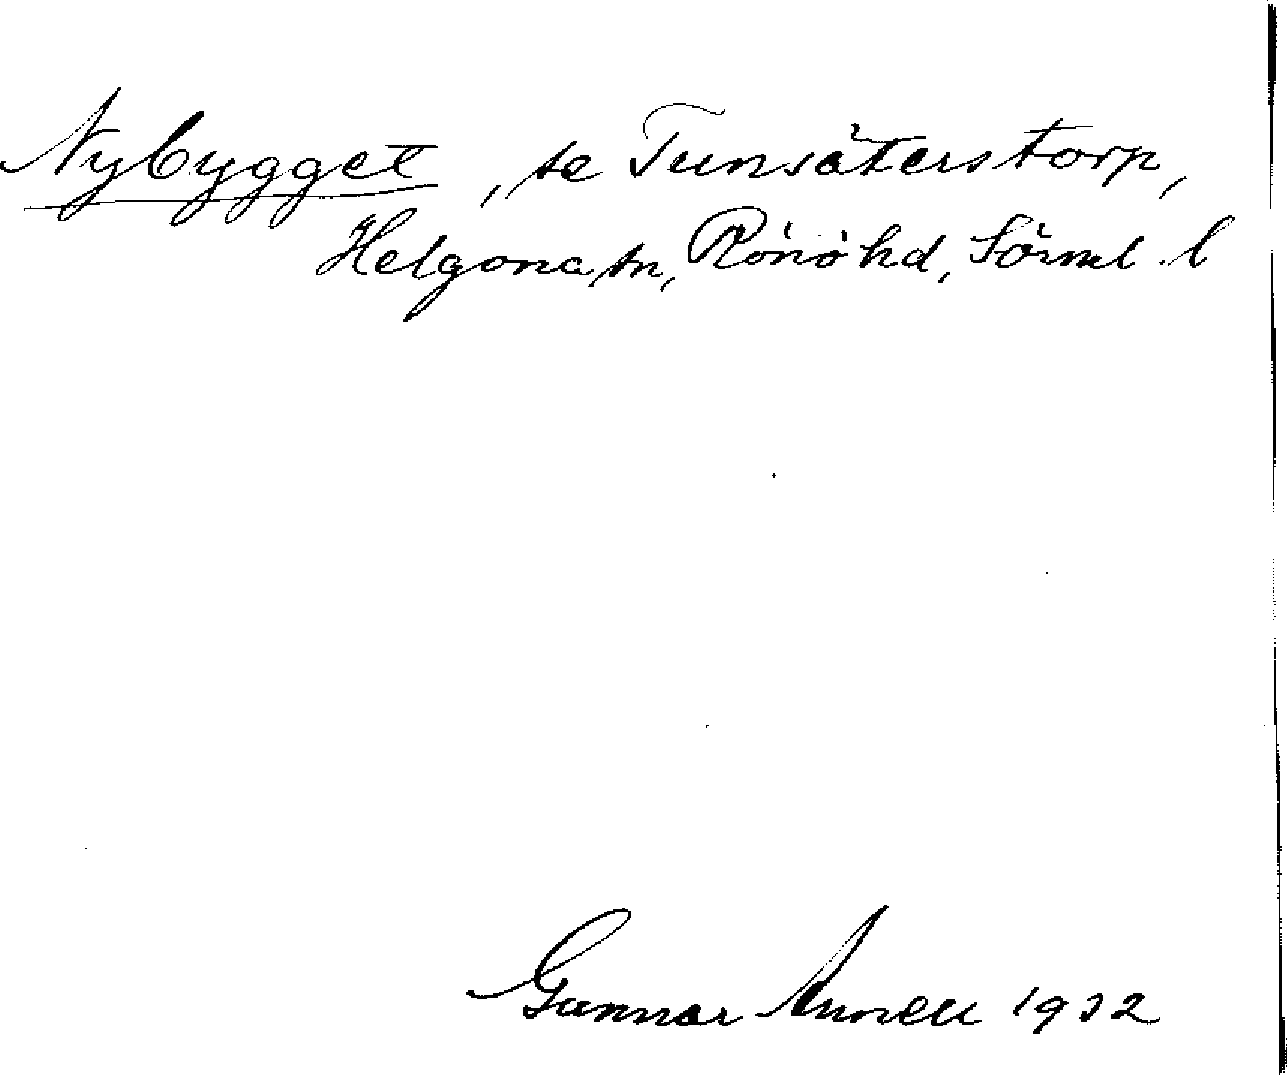 Nybygget, se Tunsäterstorp,
Helgona sn, Rönö hd, Sörml. l
Gunnar Annell 1932